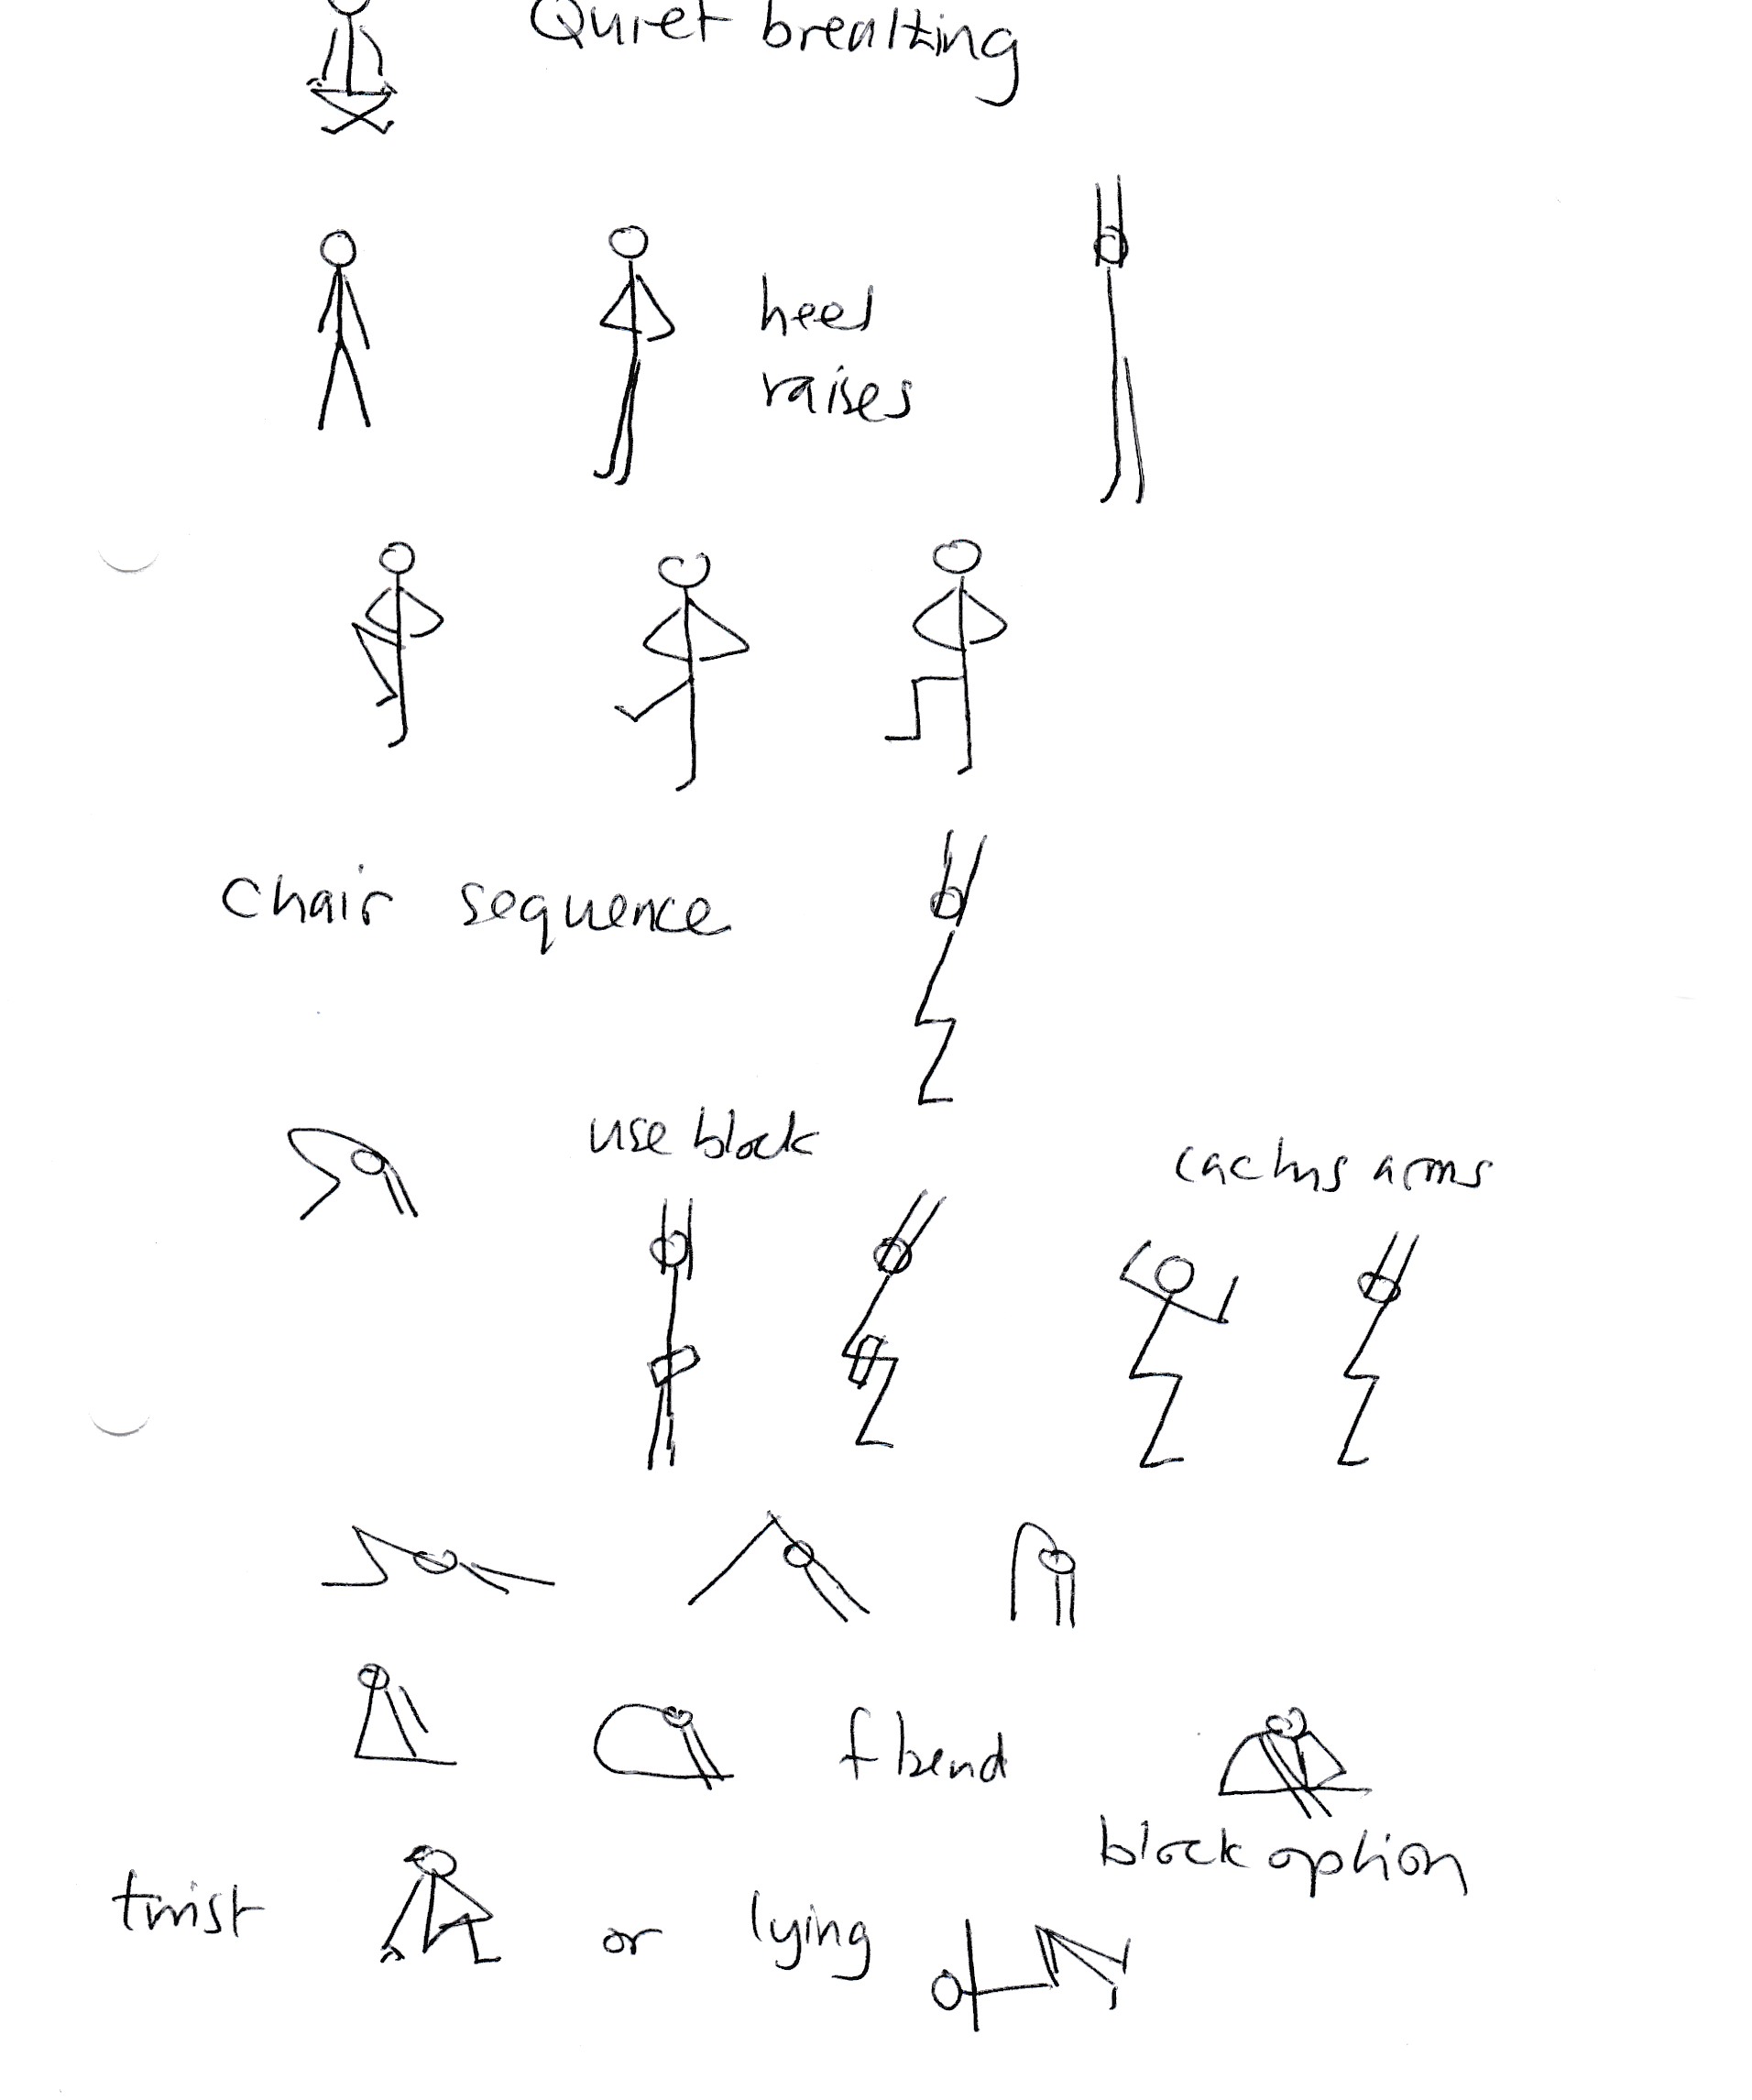 Quiet breathing
heel
raises
Chair sequence
use block
cactus arms
f bend
block option
twist
or lying